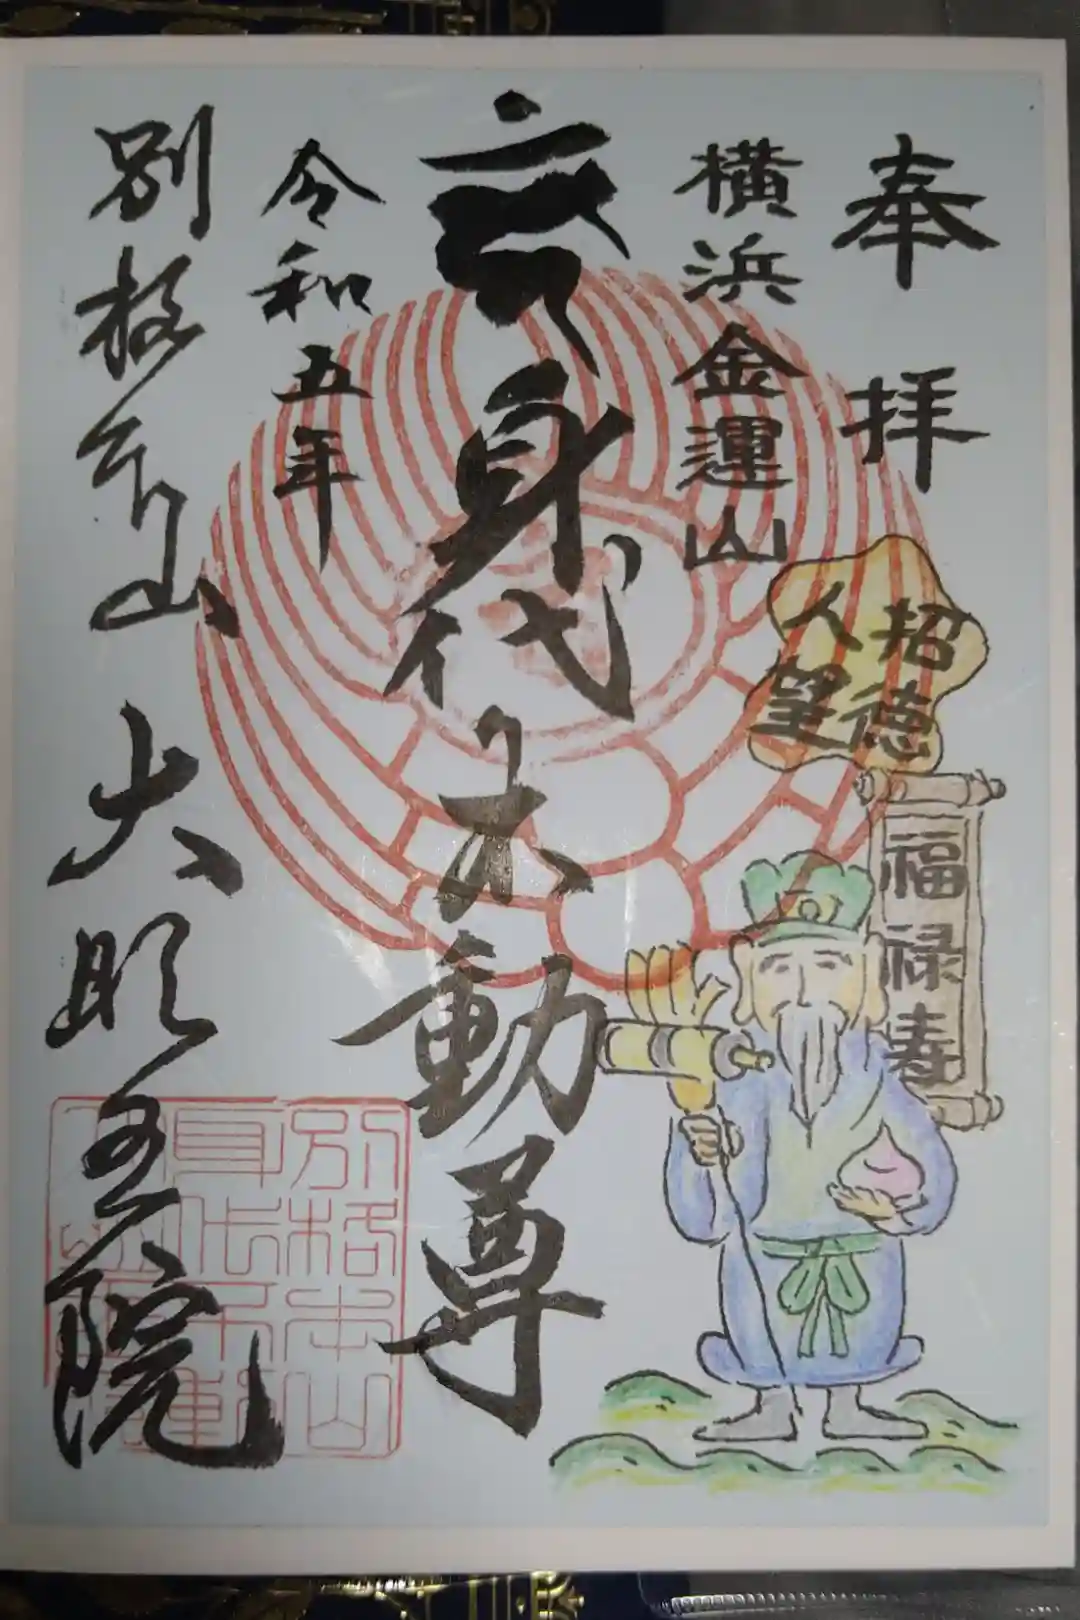 奉拝
横浜金運山
招徳
人望
福禄寿
身代不動尊
令和五年
別格本山 大明王院
別格本山
身代不動